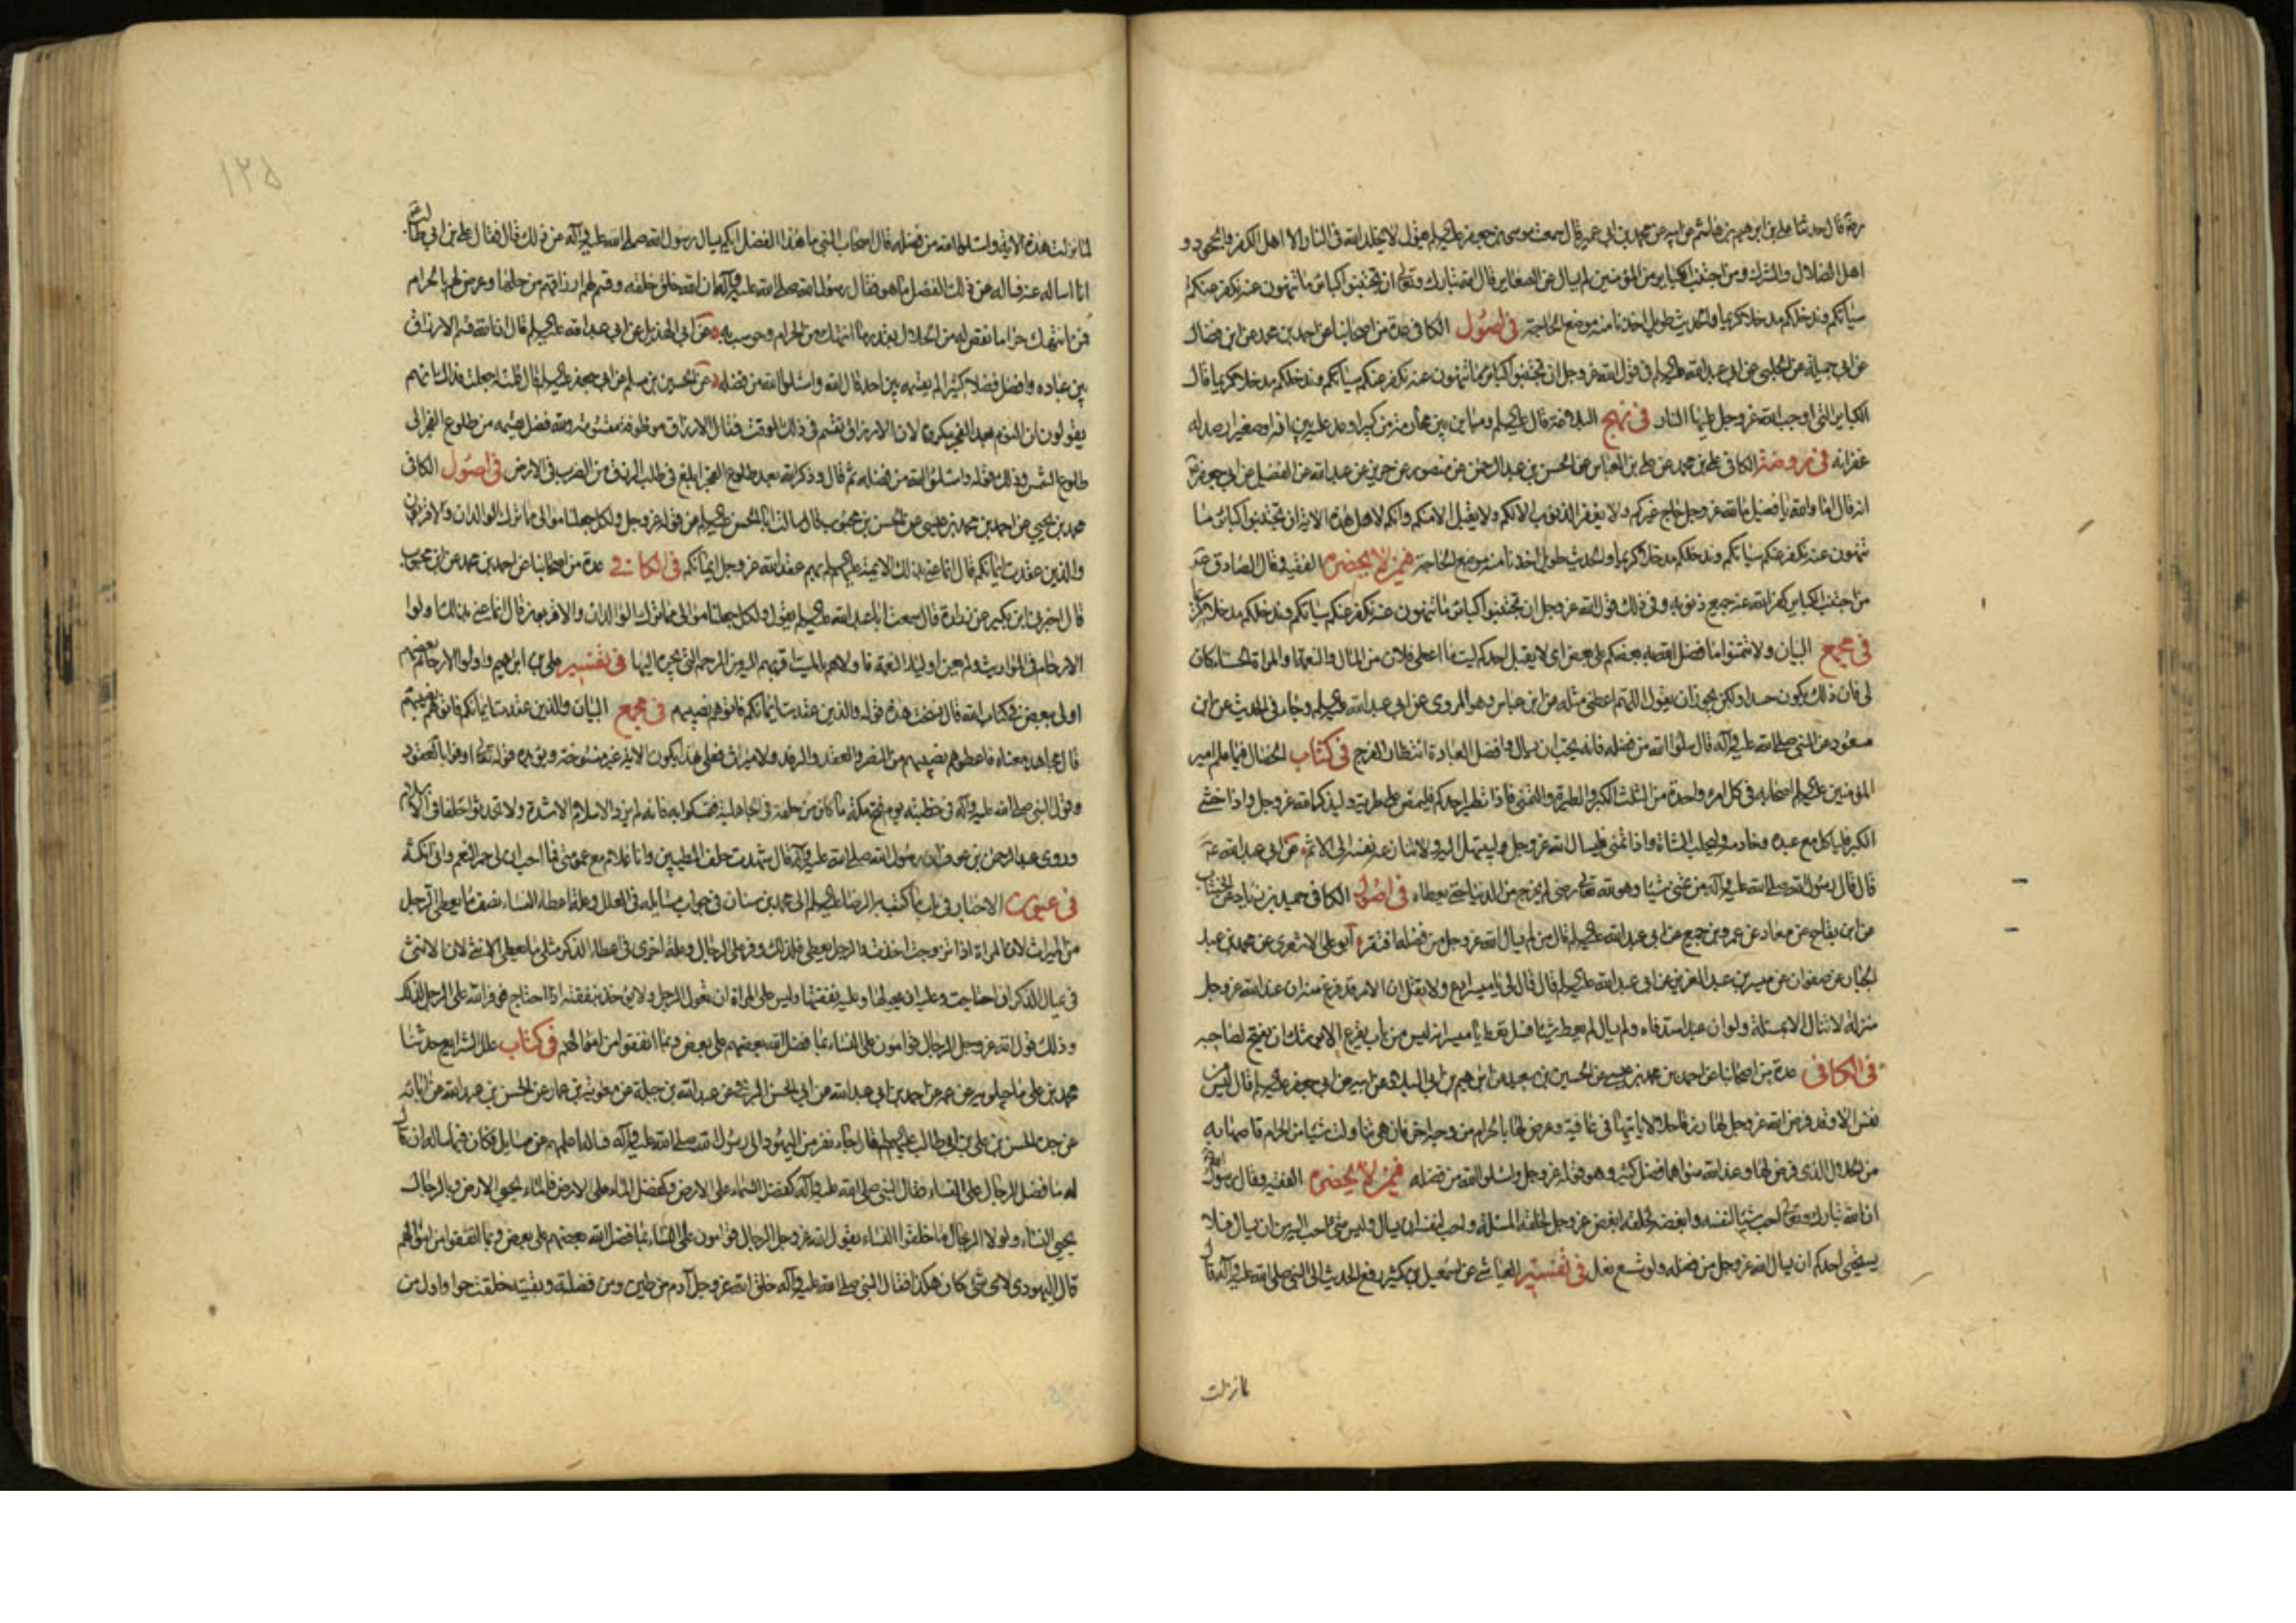 رضه قال حدثنا علي بن ابرهيم بن هاشم عن ابيه عن محمد بن ابي عمير قال سمعت موسى بن جعفر عليه السلم يقول لا يخلد الله في النار الا اهل الكفر والجحود و
اهل الضلال والشرك ومن اجتنب الكباير من المؤمنين لم يسال عن الصغاير قال الله تبارك وتعالى ان تجتنبوا كباير ما تنهون عنه نكفر عنكم
سياتكم وندخلكم مدخلا كريما والحديث طويل اخذنا منه موضع الحاجة في اصول الكافي عدة من اصحابنا عن احمد بن محمد عن ابن فضال
عن ابي جميلة عن الحلبي عن ابي عبد الله عليه السلم في قول الله عز وجل ان تجتنبوا كباير ما تنهون عنه نكفر عنكم سياتكم وندخلكم مدخلا كريما قال
الكباير التي اوجب الله عز وجل عليها النار في نهج البلاغة قال عليه السلم ومباين بين محارمه من كبير اوعد عليه نيرانه او صغير ارصد له
غفرانه في روضة الكافي علي بن محمد عن علي بن العباس عن الحسن بن عبد الرحمن عن منصور عن حريز عن عبد الله عن الفضيل عن ابي جعفر
انه قال اما والله يا فضيل ما لله عز وجل حاج غيركم ولا يغفر الذنوب الا لكم ولا يقبل الا منكم وانكم لاهل هذه الاية ان تجتنبوا كباير ما
تنهون عنه نكفر عنكم سياتكم وندخلكم مدخلا كريما والحديث طويل اخذنا منه موضع الحاجة فيمن لا يحضره الفقيه وقال الصادق
من اجتنب الكباير كفر الله عنه جميع ذنوبه وفي ذلك قول الله عز وجل ان تجتنبوا كباير ما تنهون عنه نكفر عنكم سياتكم وندخلكم مدخلا كريما
في مجمع البيان ولا تتمنوا ما فضل الله به بعضكم على بعض اى لا يقبل احدكم ليت ما اعطى فلان من المال والنعمة او المراة الحسناء كان
لي فان ذلك يكون حسدا ولكن يجوز ان يقول اللهم اعطني مثله عن ابن عباس وهو المروي عن ابي عبد الله عليه السلم وجاء في الحديث عن ابن
مسعود عن النبي صلى الله عليه وآله قال سلوا الله من فضله فانه يحب ان يسال وافضل العبادة انتظار الفرج في كتاب الخصال فيما علم امير
المؤمنين عليه السلم اصحابه في كل امرء واحدة من الثلث الكبر والطيرة والتمني فاذا تطير احدكم فليمض على طيرته وليذكر الله عز وجل واذا خشى
الكبر فلياكل مع عبده وخادمه وليحلب الشاة واذا تمنى فليسال الله عز وجل وليبتهل اليه ولا تنازعه نفسه الى الاثم عن ابي عبد الله
قال قال رسول الله صلى الله عليه وآله من تمنى شيئا وهو لله تعالى رضى لم يخرج من الدنيا حتى يعطاه في اصول الكافي حميد بن زياد عن الخشاب
عن ابن بقاح عن معاذ عن عمرو بن جميع عن ابي عبد الله عليه السلم قال من لم يسال الله عز وجل من فضله افتقر ابو علي الاشعري عن محمد بن عبد
الجبار عن صفوان عن ميسر بن عبد العزيز عن ابي عبد الله عليه السلم قال قال لي يا ميسر ادع ولا تقل ان الامر قد فرغ منه ان عند الله عز وجل
منزلة لا تنال الا بمسئلة ولو ان عبدا سد فاه ولم يسال لم يعط شيئا فسل تعط يا ميسر انه ليس من باب يقرع الا يوشك ان يفتح لصاحبه
في الكافي عدة من اصحابنا عن احمد بن محمد بن عيسى عن الحسين بن سعيد عن ابرهيم بن ابي البلاد عن ابيه عن ابي جعفر عليه السلم قال ليس من
نفس الا وقد فرض الله عز وجل لها رزقا حلالا ياتيها في عافية وعرض لها بالحرام من وجه اخر فان هي تناولت شيئا من الحرام قاصها به
من الحلال الذي فرض لها وعند الله سواهما فضل كثير وهو قوله عز وجل واسئلوا الله من فضله فيمن لا يحضره الفقيه وقال رسول الله
ان الله تبارك وتعالى احب شيئا لنفسه وابغضه لخلقه ابغض عز وجل لخلقه المسئلة واحب لنفسه ان يسال وليس شئ احب اليه من ان يسال فلا
يستحيي احدكم ان يسال الله عز وجل من فضله ولو شسع نعل في تفسير العياشي عن اسمعيل بن كثير رفع الحديث الى النبي صلى الله عليه وآله قال
لما نزلت
١٢٥
لما نزلت هذه الاية واسئلوا الله من فضله قال اصحاب النبي ما هذا الفضل ايكم يسال رسول الله صلى الله عليه وآله عن ذلك قال فقال علي بن ابي طالب
انا اساله عنه فساله عن ذلك الفضل ما هو فقال رسول الله صلى الله عليه وآله ان الله خلق خلقه وقسم لهم ارزاقهم من حلها وعرض لهم بالحرام
فمن انتهك حراما نقص له من الحلال بقدر ما انتهك من الحرام وحوسب به عن ابي الهذيل عن ابي عبد الله عليه السلم قال ان الله قسم الارزاق
بين عباده وافضل فضلا كثيرا لم يقسمه بين احد قال الله واسئلوا الله من فضله عن الحسين بن مسلم عن ابي جعفر عليه السلم قال قلت له جعلت فداك انهم
يقولون ان النوم بعد الفجر مكروه لان الارزاق تقسم في ذلك الوقت فقال الارزاق موظوفة مقسومة ولله فضل يقسمه من طلوع الفجر الى
طلوع الشمس وذلك قوله واسئلوا الله من فضله ثم قال وذكر الله بعد طلوع الفجر ابلغ في طلب الرزق من الضرب في الارض في اصول الكافي
محمد بن يحيى عن احمد بن محمد بن عيسى عن الحسن بن محبوب قال سالت ابا الحسن عليه السلم عن قوله عز وجل ولكل جعلنا موالى مما ترك الوالدان والاقربون
والذين عقدت ايمانكم قال انما عنى بذلك الايمة عليهم السلم بهم عقد الله عز وجل ايمانكم في الكافي عدة من اصحابنا عن احمد بن محمد عن ابن محبوب
قال اخبرني ابن بكير عن زرارة قال سمعت ابا عبد الله عليه السلم يقول ولكل جعلنا موالى مما ترك الوالدان والاقربون قال انما عنى بذلك اولوا
الارحام في المواريث ولم يعن اولياء النعمة فاولاهم بالميت اقربهم اليه من الرحم التي يجره اليها في تفسير علي بن ابرهيم واولوا الارحام بعضهم
اولى ببعض في كتاب الله قال نسخت هذه قوله والذين عقدت ايمانكم فاتوهم نصيبهم في مجمع البيان والذين عقدت ايمانكم فاتوهم نصيبهم
قال مجاهد معناه فاعطوهم نصيبهم من النصر والعقد والرفد ولا ميراث فعلى هذا يكون الاية غير منسوخة ويؤيده قوله تعالى اوفوا بالعقود
وقول النبي صلى الله عليه وآله في خطبته يوم فتح مكة ما كان من حلف في الجاهلية فتمسكوا به فانه لم يزده الاسلام الا شدة ولا تحدثوا حلفا في الاسلام
وروى عبد الرحمن بن عوف ان رسول الله صلى الله عليه وآله قال شهدت حلف المطيبين وانا غلام مع عمومتي فما احب ان لي حمر النعم واني انكثه
في عيون الاخبار في باب ما كتب به الرضا عليه السلم الى محمد بن سنان في جواب مسايله في العلل وعلة اعطاء النساء نصف ما يعطى الرجل
من الميراث لان المراة اذا تزوجت اخذت والرجل يعطي فلذلك وفر على الرجال وعلة اخرى في اعطاء الذكر مثلي ما يعطى الانثى لان الانثى
في عيال الذكر ان احتاجت وعليه ان يعولها وعليه نفقتها وليس على المراة ان تعول الرجل ولا يؤخذ بنفقته اذا احتاج فوفر الله على الرجل لذلك
وذلك قول الله عز وجل الرجال قوامون على النساء بما فضل الله بعضهم على بعض وبما انفقوا من اموالهم في كتاب علل الشرايع حدثنا
محمد بن علي ماجيلويه عن عمه عن احمد بن ابي عبد الله عن ابي الحسن البرقي عن عبد الله بن جبلة عن معوية بن عمار عن الحسن بن عبد الله عن ابائه
عن جده الحسن بن علي بن ابي طالب عليهم السلم قال جاء نفر من اليهود الى رسول الله صلى الله عليه وآله فساله اعلمهم عن مسايل فكان فيما ساله ان قال
له ما فضل الرجال على النساء فقال النبي صلى الله عليه وآله كفضل السماء على الارض وكفضل الماء على الارض فبالماء يحيى الارض وبالرجال
يحيى النساء ولولا الرجال ما خلقوا النساء يقول الله عز وجل الرجال قوامون على النساء بما فضل الله بعضهم على بعض وبما انفقوا من اموالهم
قال اليهودي لاى شئ كان هكذا فقال النبي صلى الله عليه وآله خلق الله عز وجل آدم من طين ومن فضلته وبقيته خلقت حوا واول من